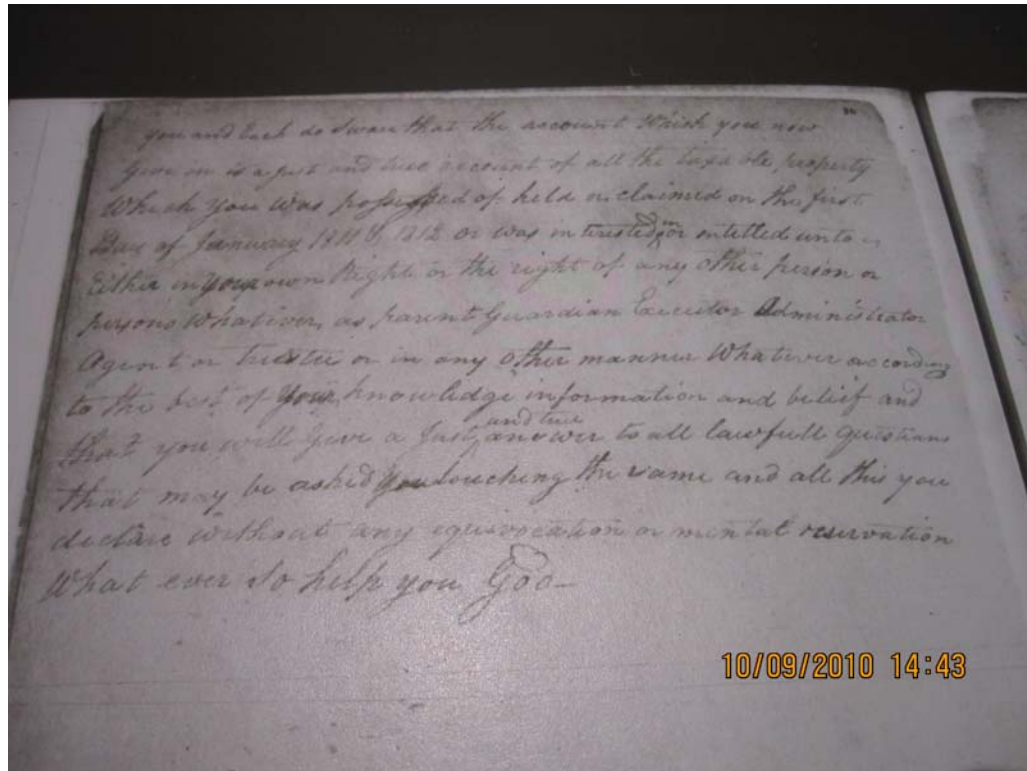 36
you and Each do Swear that the account Which you now
Give in is a just and true account of all the taxable property
Which you was possessed of held or claimed on the first
Day of January 1811 & 1812 or was interested in or intitled unto
Either in your own Right or the right of any other person or
persons Whatever, as parent Guardian Executor Administrator
Agent or trustee or in any other manner Whatever according
to the best of your knowledge information and belief and
that you will Give a Just and true answer to all lawfull questions
that may be asked you touching the same and all this you
declare without any equivocation or mental reservation
What ever So help you God—
10/09/2010 14:43